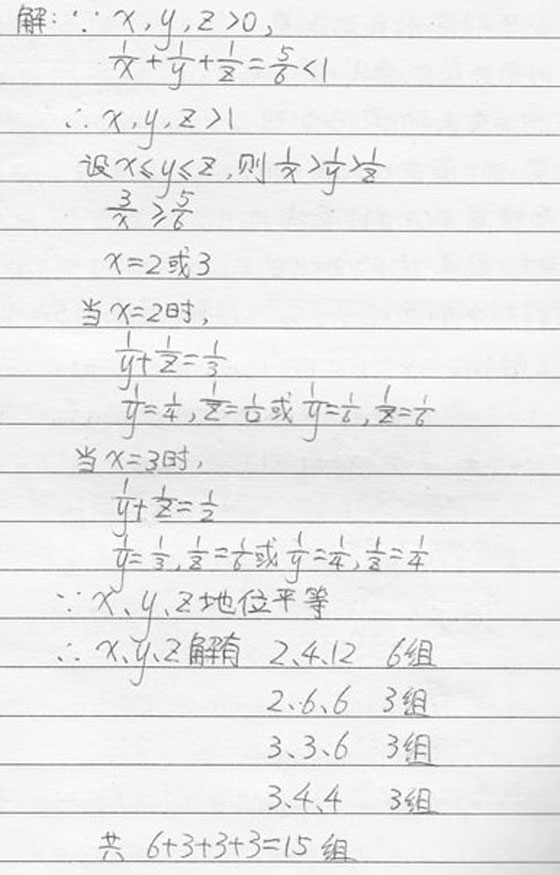 解:∵ x,y,z>0,
1/x+1/y+1/z=5/6<1
∴ x,y,z>1
设x≤y≤z,则1/x>1/y>1/z
3/x≥5/6
x=2或3
当x=2时,
1/y+1/z=1/3
1/y=1/4,1/z=1/12或1/y=1/6,1/z=1/6
当x=3时,
1/y+1/z=1/2
1/y=1/3,1/z=1/6或1/y=1/4,1/z=1/4
∵ x、y、z地位平等
∴ x、y、z解有 2、4、12 6组
2、6、6 3组
3、3、6 3组
3、4、4 3组
共 6+3+3+3=15组